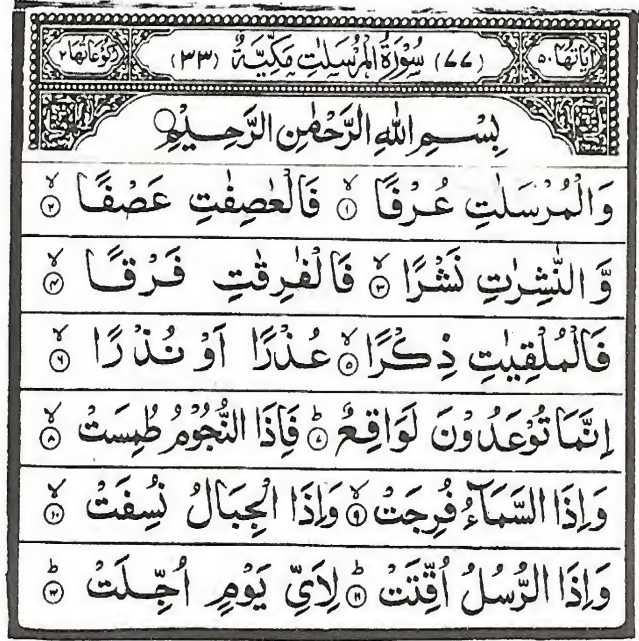 اٰيَاتُهَا ٥٠ (٧٧) سُوْرَةُ الْمُرْسَلٰتِ مَكِّيَّةٌ (٣٣) رُكُوْعَاتُهَا ٢
بِسْمِ اللّٰهِ الرَّحْمٰنِ الرَّحِيْمِ
وَالْمُرْسَلٰتِ عُرْفًا ۙ﴿١﴾ فَالْعٰصِفٰتِ عَصْفًا ۙ﴿٢﴾
وَّ النّٰشِرٰتِ نَشْرًا ۙ﴿٣﴾ فَالْفٰرِقٰتِ فَرْقًا ۙ﴿٤﴾
فَالْمُلْقِيٰتِ ذِكْرًا ۙ﴿٥﴾ عُذْرًا اَوْ نُذْرًا ۙ﴿٦﴾
اِنَّمَا تُوْعَدُوْنَ لَوَاقِعٌ ؕ﴿٧﴾ فَاِذَا النُّجُوْمُ طُمِسَتْ ۙ﴿٨﴾
وَاِذَا السَّمَآءُ فُرِجَتْ ۙ﴿٩﴾ وَاِذَا الْجِبَالُ نُسِفَتْ ۙ﴿١٠﴾
وَاِذَا الرُّسُلُ اُقِّتَتْ ؕ﴿١١﴾ لِاَيِّ يَوْمٍ اُجِّلَتْ ؕ﴿١٢﴾